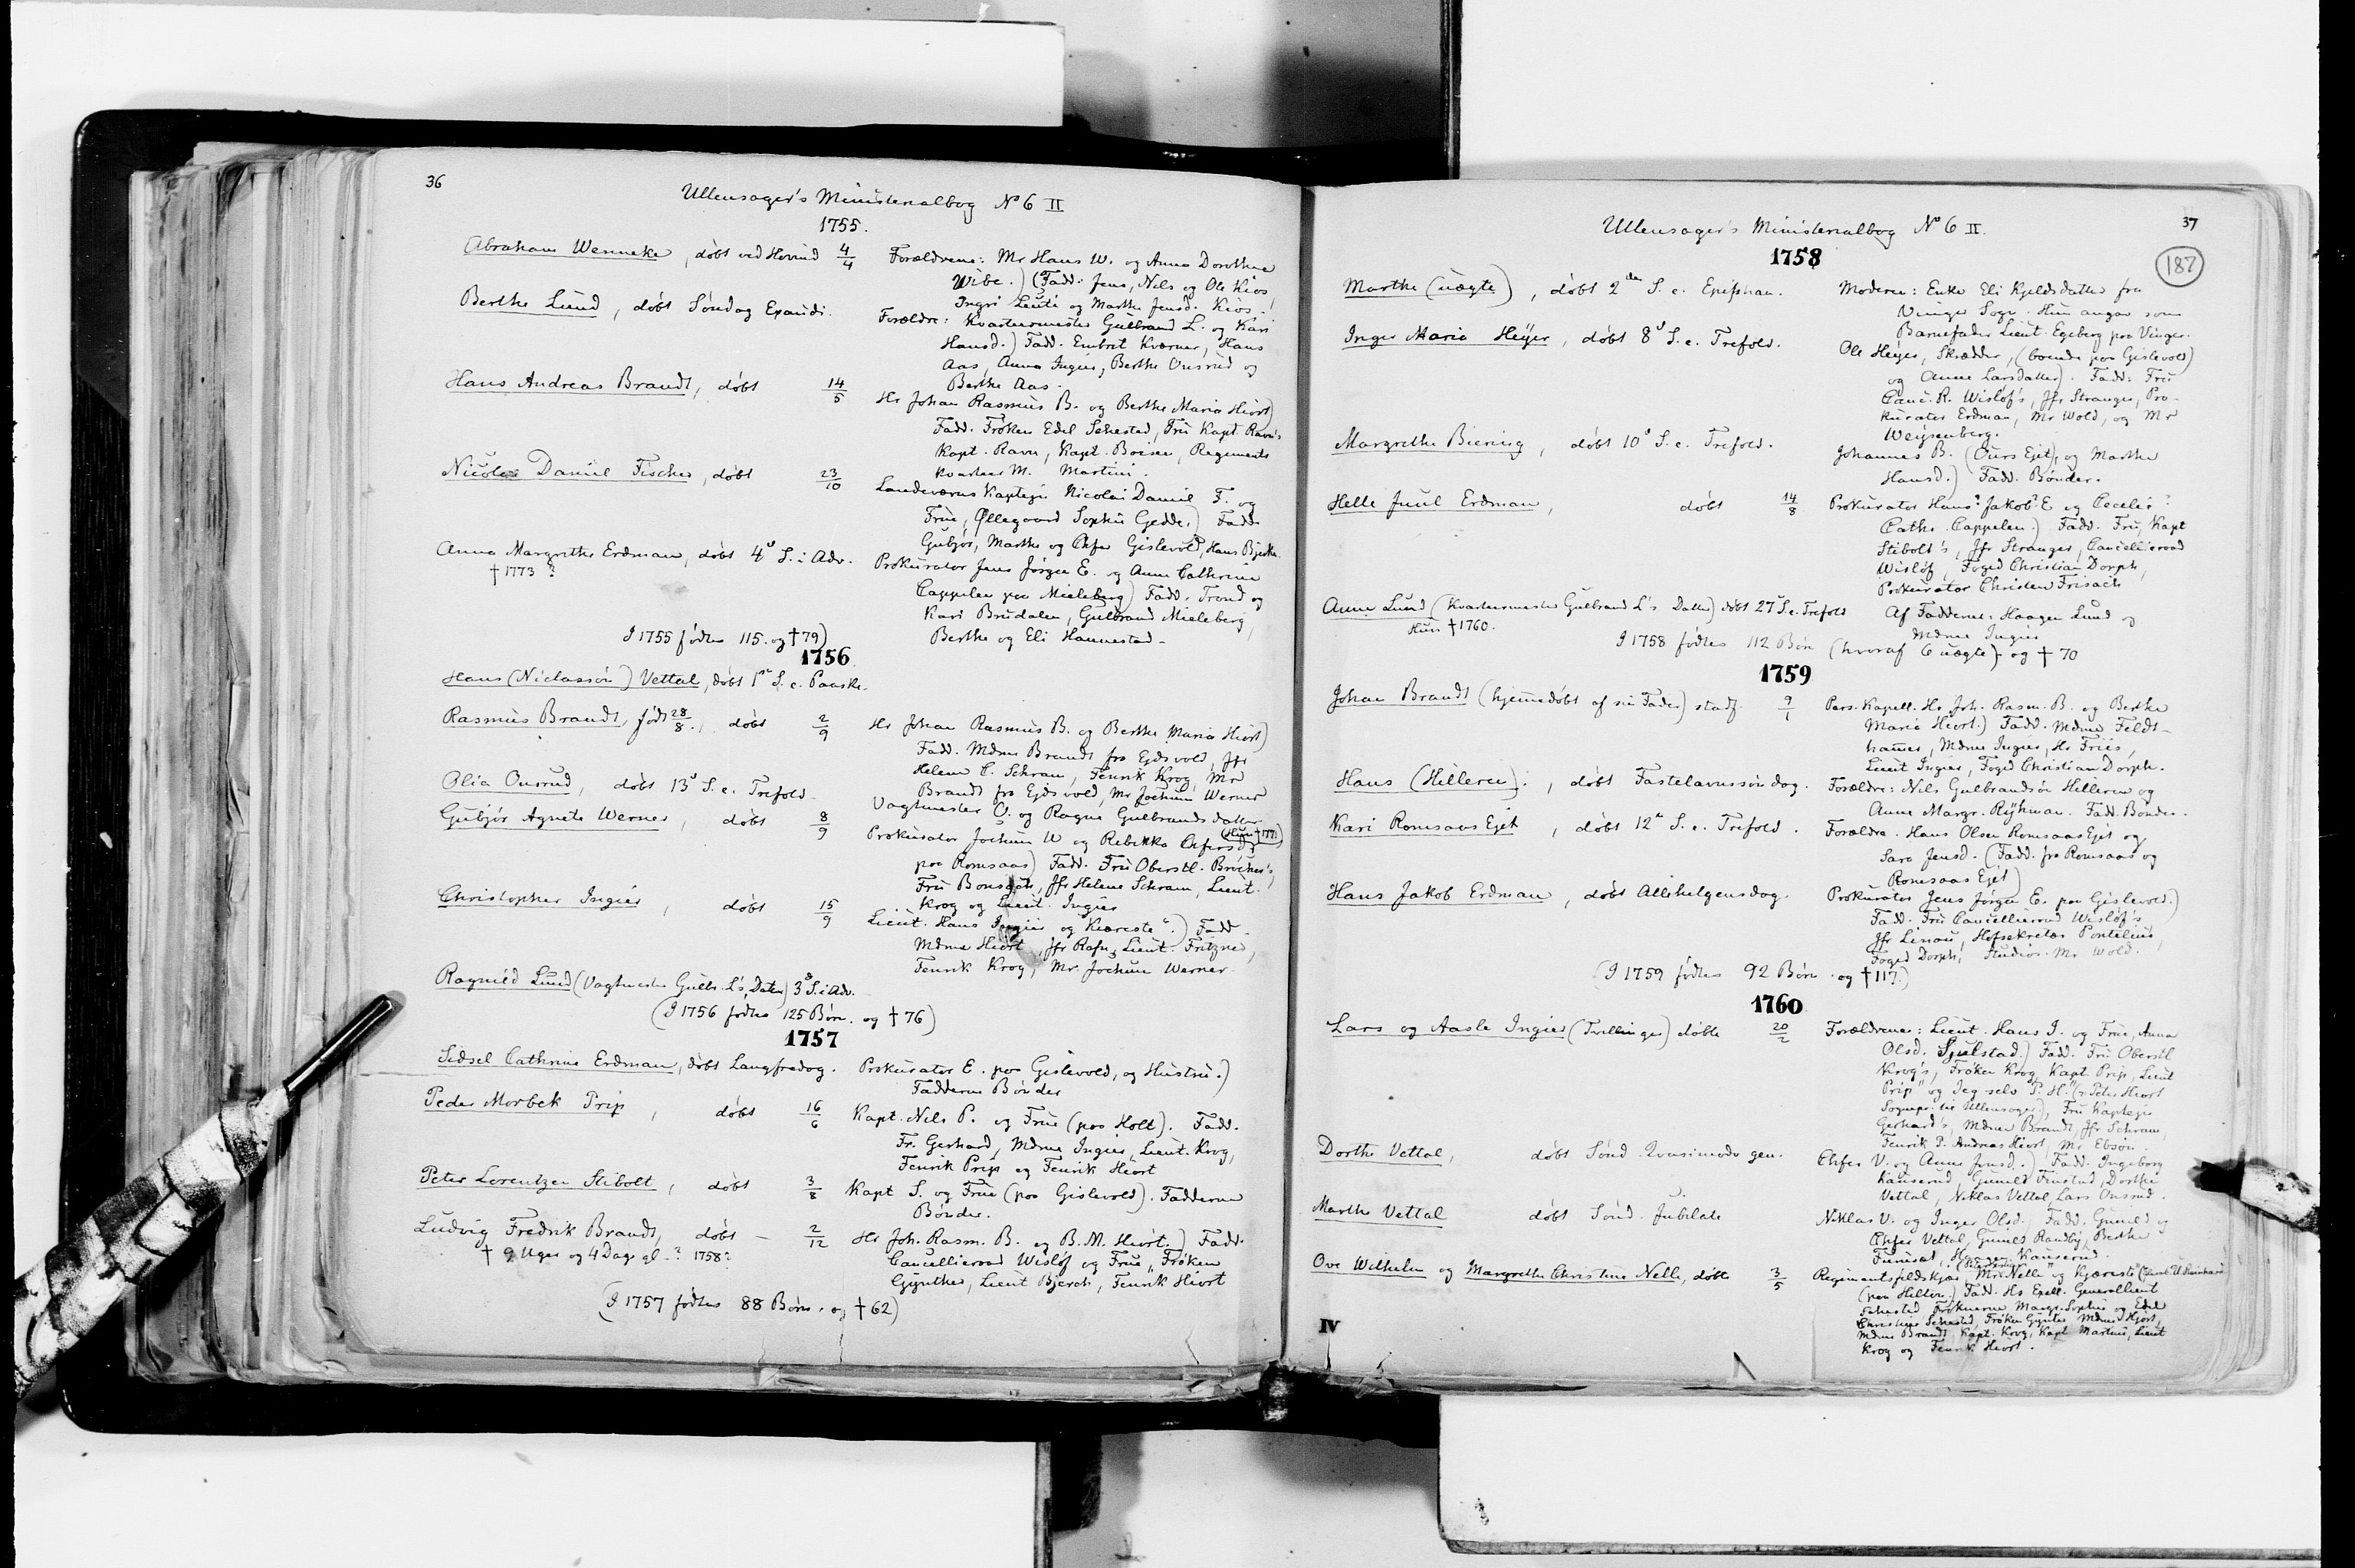 36
Ullensager's Ministerialbog No 6 II
1755.
Abraham Wenneke, døbt ved Hovind 4/4
Forældrene: Mr Hans W. og Anna Dorothea
Wibe.) (Fadd: Jens, Nils og Ole Kios,
Ingri Lüüti og Marthe Jensd. Kios.
Berthe Lund, døbt Søndag Exaudi.
Forældre: Kvartermester Gulbrand L. og Kari
Hansd.) Fadd. Embret Kværner, Hans
Aas, Anna Ingier, Berthe Onsrud og
Berthe Aas.
Hans Andreas Brandt, døbt 14/5
Hr Johan Rasmus B. og Berthe Maria Hiort)
Fadd. Frøken Edel Sehested, Fru Kapt. Ravn's
Kapt. Ravn, Kapt. Boisen, Regiments
kvarteer M. Martini.
Nicolai Daniel Fischer, døbt 23/10
Landeværns Kaptejn Nicolai Daniel F. og
Frue, Øllegaard Sophie Gedde.) Fadd.
Gubjør, Marthe og Chfer Gislevold, Hans Bjerke.
Anna Margrethe Erdman, døbt 4d S. i Adv.
† 1773?
Prokurator Jens Jørgen E. og Anne Cathrine
Cappelen paa Mieleberg) Fadd. Trond og
Kari Brudalen, Gulbrand Mieleberg,
Berthe og Eli Hannestad.
I 1755 fødtes 115. og † 79)
1756
Hans (Niclassøn) Vettal, døbt 1e S. e. Paaske.
Rasmus Brandt, født 28/8, døbt 2/9
Hr Johan Rasmus B. og Berthe Maria Hiort)
Fadd. Mdme Brandt fra Ejdsvold, Jfr
Helene C. Schram, Fenrik Krog, Mr
Brandt fra Ejdsvold, Mr Jochum Werner
Olia Onsrud, døbt 13d S. e. Trefold.
Vagtmester O. og Ragne Gulbrandsdatter
Gubjør Agnete Werner, døbt 8/9
Prokurator Jochum W og Rebekka Chfersd.
(Hun † 1771)
paa Romsaas) Fadd. Fru Oberstl. Brücher's,
Fru Bonsach, Jfr Helene Schram, Lieut.
Krog og Lieut. Ingier
Christopher Ingier, døbt 15/9
Lieut. Hans Ingier og "Kiæreste".) Fadd.
Mdme Hiort, Jfr Rafn, Lieut. Fritzner,
Fenrik Krog, Mr. Jochum Werner.
Ragnild Lund (Vagtmester Gulb. L's Datter) 3d S. i Adv.
(I 1756 fødtes 125 Børn. og † 76)
1757
Sidsel Cathrine Erdman, døbt Langfredag.
Prokurator E. paa Gislevold, og Hustru.)
Fadderne Bønder
Peder Morbek Prip, døbt 16/6
Kapt. Nils P. og Frue (paa Holt). Fadd.
Fr. Gerhard, Mdme Ingier, Lieut. Krog,
Fenrik Prip og Fenrik Hiort
Peter Lorentzen Stibolt, døbt 3/8
Kapt S. og Frue (paa Gislevold). Fadderne
Bønder.
Ludvig Fredrik Brandt, døbt 2/12
† 9 Uger og 4 Dage gl. ? 1758?
Hr Joh. Rasm. B. og B. M. Hiort.) Fadd.
Cancellieraad Wisløf og Frue, Frøken
Gynther, Lieut Bjerch, Fenrik Hiort
(I 1757 fødtes 88 Børn. og † 62)
37
Ullensager's Ministerialbog No 6 II.
187
1758
Marthe (uægte), døbt 2den S. e. Epiphan.
Moderen: Enke Eli Kjeldsdatter fra
Vinger Sogn. Hun angav som
Barnefader Lieut. Egeberg paa Vinger.
Inger Maria Heyer, døbt 8d S. e. Trefold.
Ole Heyer, Skrædder, (boende paa Gislevold)
og Anne Larsdatter). Fadd: Fru
Canc. R. Wisløf's, Jfr Stranger, Pro-
kurator Erdman, Mr Wold, og Mr
Weysenberg.
Margrethe Biering, døbt 10d S. e. Trefold.
Johannes B. (Ours Ejet), og Marthe
Hansd.) Fadd. Bønder.
Helle Juul Erdman, døbt 14/8
Prokurator Hans? Jakob? E og Cecelie?
Cathr. Cappelen.) Fadd. Fru Kapt
Stibolt's, Jfr Stranger, Cancellieraad
Wisløf, Foged Christian Dorph,
Prokurator Christen Frisach
Anne Lund (Kvartermester Gulbrand L's Datter) døbt 27d S. e. Trefold
Hun † 1760.
Af Fadderne: Haagen Lund og
Mdme Ingier
I 1758 fødtes 112 Børn (hvoraf 6 uægte) og † 70
1759
Johan Brandt (hjemmedøbt af sin Fader) stadf. 9/1
Pers. Kapell. Hr Joh. Rasm. B. og Berthe
Maria Hiort.) Fadd. Mdme Feldt-
hamer, Mdme Ingier, Hr Friis,
Lieut Ingier, Foged Christian Dorph.
Hans (Hilleren), døbt Fastelavnssøndag.
Forældre: Nils Gulbrandsøn Hilleren og
Anne Margr. Ryhman. Fadd. Bønder.
Kari Romsaas Ejet, døbt 12te S. e. Trefold.
Forældre. Hans Olsen Romsaas Ejet og
Sara Jensd. (Fadd. fra Romsaas og
Romsaas Ejet)
Hans Jakob Erdman, døbt Allehelgensdag.
Prokurator Jens Jørgen E. paa Gislevold.)
Fadd. Fru Cancellieraad Wisløf's
Jfr Linau, Hofsekretær Pontelius,
Foged Dorph, Studios. Mr Wold.
(I 1759 fødtes 92 Børn. og † 117.)
1760
Lars og Aasle Ingier (Tvillinger) døbte 20/2
Forældrene: Lieut. Hans I. og Frue, Anna
Olsd. Sjulstad.) Fadd. Fru Oberstl
Krog's, Frøken Krog, Kapt. Prip, Lieut
Prip "og Jeg selv P. H." (: Peter Hiort
Sognepr. til Ullensager), Fru Kaptejn
Gerhard's, Mdme Brandt, Jfr Schram,
Fenrik P. Andreas Hiort, Mr Ebsøn.
Dorthe Vettal, døbt Sønd. Quasimodo gen.
Chfer V. og Anne Jensd.) Fadd. Ingeborg
Kauserud, Gunild Finstad, Dorthe
Vettal, Niklas Vettal, Lars Onsrud.
Marthe Vettal døbt Sønd. Jubilate
Niklas V. og Inger Olsd. Fadd. Gunild og
Chfer Vettal, Gunild Randby, Berthe
Furusat, Haagen Kauserud.
Ove Wilhelm og Margrethe Christine Nelle, døbte 3/5
Regimentsfeldskjær Mr Nelle og "Kjæreste"
(paa Hilton.) Fadd. Hs Excell. Generallieut
Sehested, Frøknerne Margr. Sophie og Edel
Christine Sehested, Frøken Gynther, Mdme Hjort,
Mdme Brandt, Kapt. Krog, Kapt Martini, Lieut
Krog og Fenrik Hiort.
IV